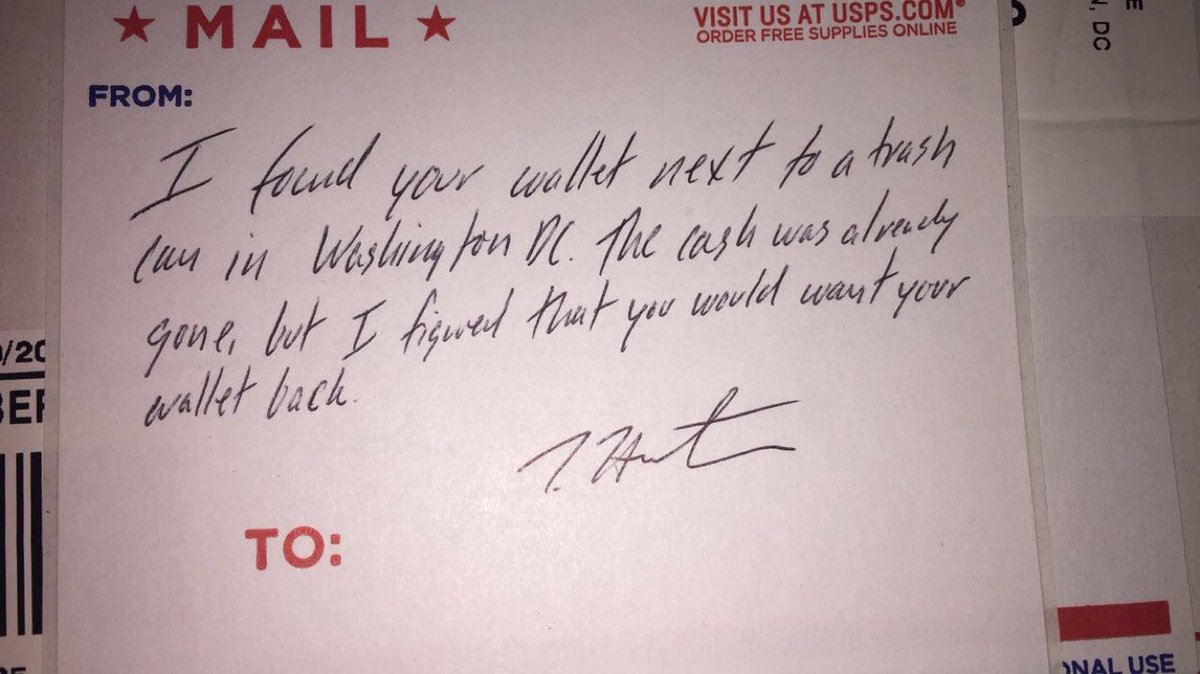 ★ MAIL ★
VISIT US AT USPS.COM®
ORDER FREE SUPPLIES ONLINE
FROM:
I found your wallet next to a trash
can in Washington DC. The cash was already
gone, but I figured that you would want your
wallet back.
TO:
, DC
E
/20
BER
ONAL USE